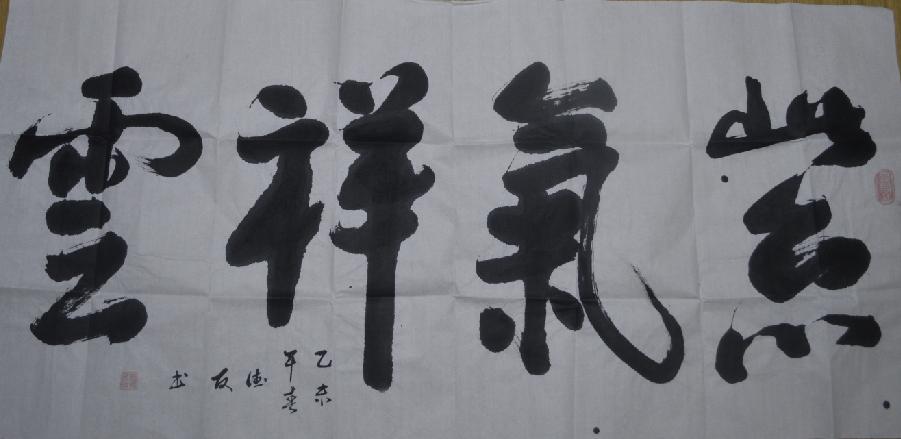 紫氣祥雲
乙未
年春
德友书